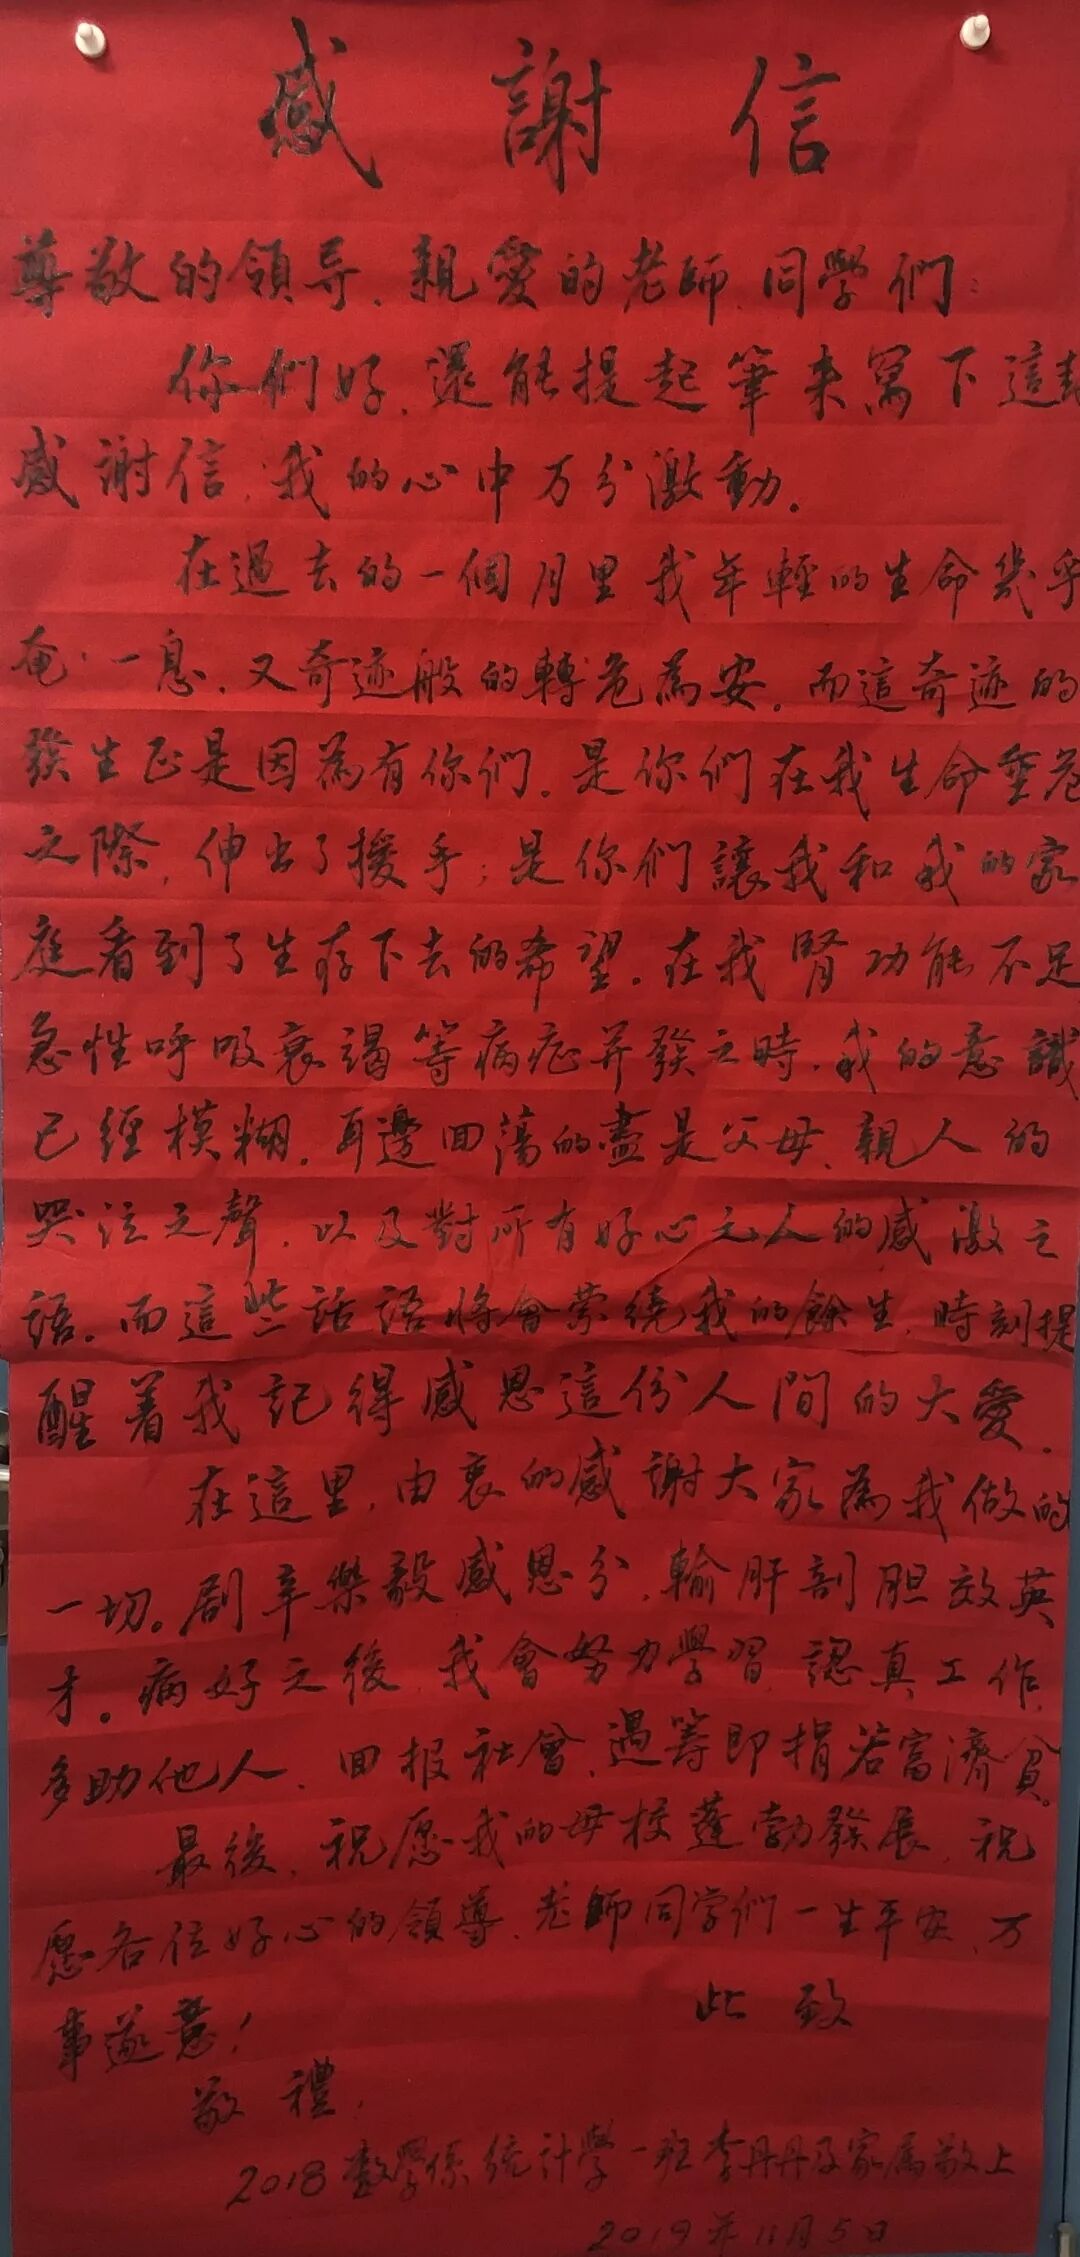 感謝信
尊敬的領导、親愛的老師、同學們：
你們好，還能提起筆来寫下這封
感謝信，我的心中万分激動。
在過去的一個月里我年輕的生命幾乎
奄·一息，又奇迹般的轉危為安，而這奇迹的
發生正是因為有你們。是你們在我生命垂危
之際，伸出了援手；是你們讓我和我的家
庭看到了生存下去的希望。在我腎功能不足
急性呼吸衰竭等病症并發之時，我的意識
已經模糊。耳邊回蕩的盡是父母、親人的
哭泣之聲，以及對所有好心之人的感激之
語。而這些話語將會縈绕我的餘生，時刻提
醒着我記得感恩這份人間的大愛。
在這里，由衷的感謝大家為我做的
一切。劇辛樂毅感恩分，輸肝剖胆效英
才。病好之後，我會努力學習，認真工作，
多助他人，回报社會，遇籌即捐若富濟貧。
最後，祝愿我的母校蓬勃發展，祝
愿各位好心的領導、老師同学們一生平安、万
事遂意！
此致
敬禮！
2018數學係統计學一班李丹丹及家属敬上
2019年11月5日